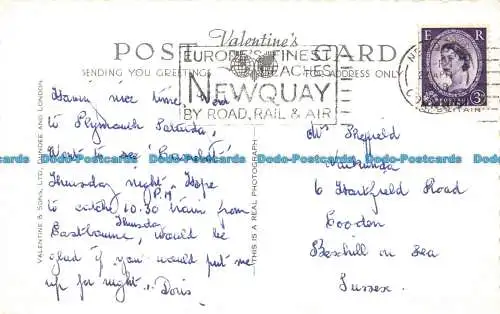 Valentine's
POST CARD
SENDING YOU GREETINGS
ADDRESS ONLY
EUROPE'S FINEST
BEACHES
NEWQUAY
BY ROAD, RAIL & AIR
E R
VALENTINE & SONS, LTD., DUNDEE AND LONDON
THIS IS A REAL PHOTOGRAPH
Having nice time. Been
to Plymouth Saturday,
Went to see
Thursday night. Hope
P.M.
to catch 10.30 train from
Thursday
Eastbourne, would be
glad if you would put me
up for night. Doris
Sheffield
6 Hartfield Road
Cooden
Bexhill on Sea
Sussex.
Dodo-Postcards Dodo-Postcards Dodo-Postcards Dodo-Postcards Dodo-Postcards